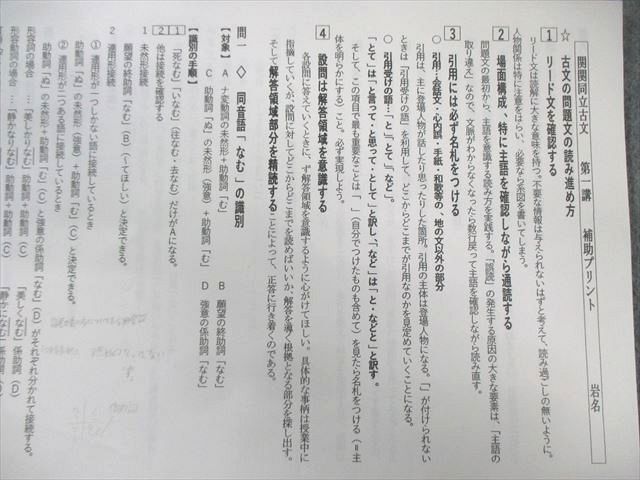 関関同立古文　第一講　補助プリント　岩名
☆　古文の問題文の読み進め方
1　リード文を確認する
リード文は読解に大きな意味を持つ。不要な情報は与えられないはずと考えて、読み過ごしの無いように。
人物関係は特に注意をはらい、必要なら系図を書いてしまう。
2　場面構成、特に主語を確認しながら通読する
問題文の最初から、主語を意識する読み方を実践する。「誤読」の発生する原因の大きな要素は、「主語の
取り違え」なので、文脈がわからなくなったら数行戻って主語を確認しながら読み直す。
3　引用には必ず名札をつける
○　引用…会話文・心内文・誤用・手紙・和歌等の、地の文以外の部分
引用は、主に登場人物が話したり思ったりした箇所。引用の主体は登場人物になる。「」が付けられない
ときは「引用受けの語」を利用して、どこからどこまでが引用なのかを見定めていくことになる。
○　引用受けの語…「と」「とて」「など」。
「とて」は「と言って・と思って・として」と訳し、「など」は「と・などと」と訳す。
そして、この項目で最も重要なことは「　」（自分でつけたものも含めて）を見たら名札をつける（＝主
体を明らかにする）こと。必ず実現しよう。
4　設問は解答領域を意識する
各設問に答えていくときに、まず解答領域を意識するように心がけてほしい。具体的な事柄は授業中に
指摘していくが、設問に対してどこからどこまでを読めばいいか、解答を導く根拠となる部分を探し出す。
そして解答領域部分を精読することによって、正答に行き着くのである。
問一　◇　同音語「なむ」の識別
【対象】　A　ナ変動詞の未然形＋助動詞「む」　B　願望の終助詞「なむ」
C　助動詞「ぬ」の未然形（強意）＋助動詞「む」　D　強意の係助詞「なむ」
【識別の手順】
1　「死なむ」「いなむ」（往なむ・去なむ）だけがAになる。
2　他は接続を確認する
1　未然形接続
願望の終助詞「なむ」（B）（～てほしい）と決定できる。
2　連用形接続
①　連用形が一つしかない語に接続しているとき
助動詞「ぬ」の未然形（強意）＋助動詞「む」（C）と決定できる。
②　連用形が二つある語に接続しているとき
助動詞「ぬ」の未然形＋助動詞「む」（C）と強意の係助詞「なむ」（D）がそれぞれ分かれて接続する。
形容詞の場合　…　「美しかりなむ」助動詞＋助動詞（C）　「美しくなむ」係助詞（D）
形容動詞の場合　…　「静かなりなむ」助動詞＋助動詞（C）　「静かになむ」係助詞（D）